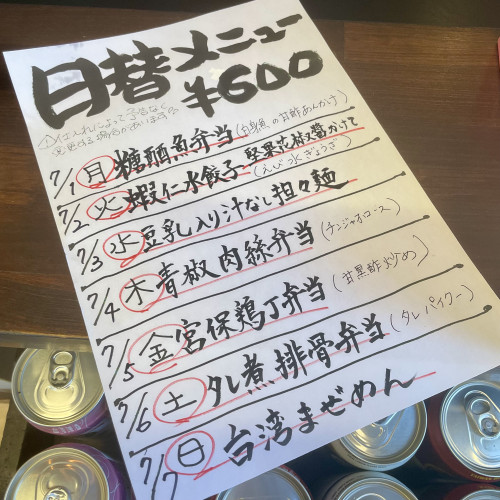 日替メニュー
¥600
①仕入れによって予告なく
変更する場合があります。
7/1 月 糖酢魚弁当 (白身魚の甘酢あんかけ)
7/2 火 蝦仁水餃子 堅果花椒醤かけて (えび水ぎょうざ)
7/3 水 豆乳入り汁なし担々麺
7/4 木 青椒肉絲弁当 (チンジャオロース)
7/5 金 宮保鶏丁弁当 (甘黒酢炒め)
7/6 土 タレ煮排骨弁当 (タレパイクー)
7/7 日 台湾まぜめん